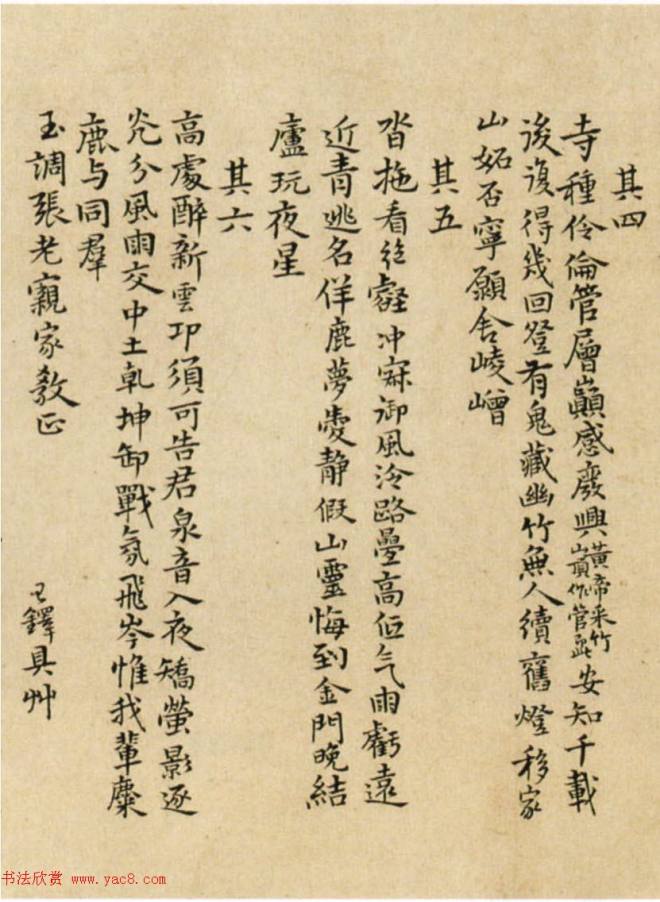 其四
寺種伶倫管層巔感廢興黃帝采竹嶺作管岳安知千載
後復得幾回登有鬼藏幽竹無人續舊燈移家
山妬否寧願舍崚嶒
其五
沓拖看絕壑沖寐御風泠路疊高低气雨虧遠
近青逃名佯鹿夢愛靜假山靈悔到金門晚結
廬玩夜星
其六
高處醉新雲卭須可告君泉音入夜矯螢影逐
光分風雨交中土乾坤卸戰氛飛岑惟我輩麋
鹿与同羣
玉調張老親家教正
王鐸具艸
书法欣赏 www.yac8.com